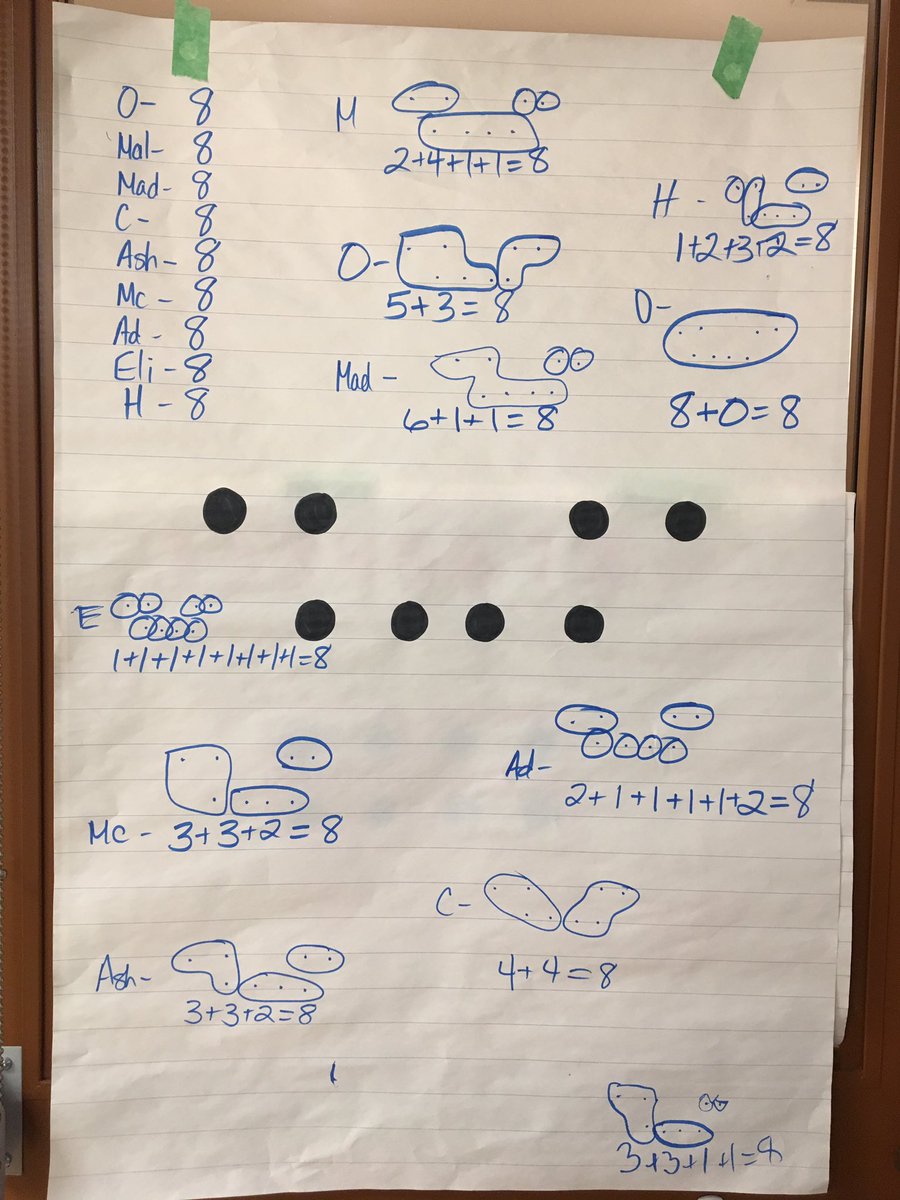 O- 8
Mal- 8
Mad- 8
C- 8
Ash- 8
Mc- 8
Ad- 8
Eli- 8
H- 8
M
2+4+1+1=8
H-
1+2+3+2=8
O-
5+3=8
O-
8+0=8
Mad-
6+1+1=8
E
1+1+1+1+1+1+1+1=8
Ad-
2+1+1+1+1+2=8
Mc- 3+3+2=8
C-
4+4=8
Ash-
3+3+2=8
3+3+1+1=8